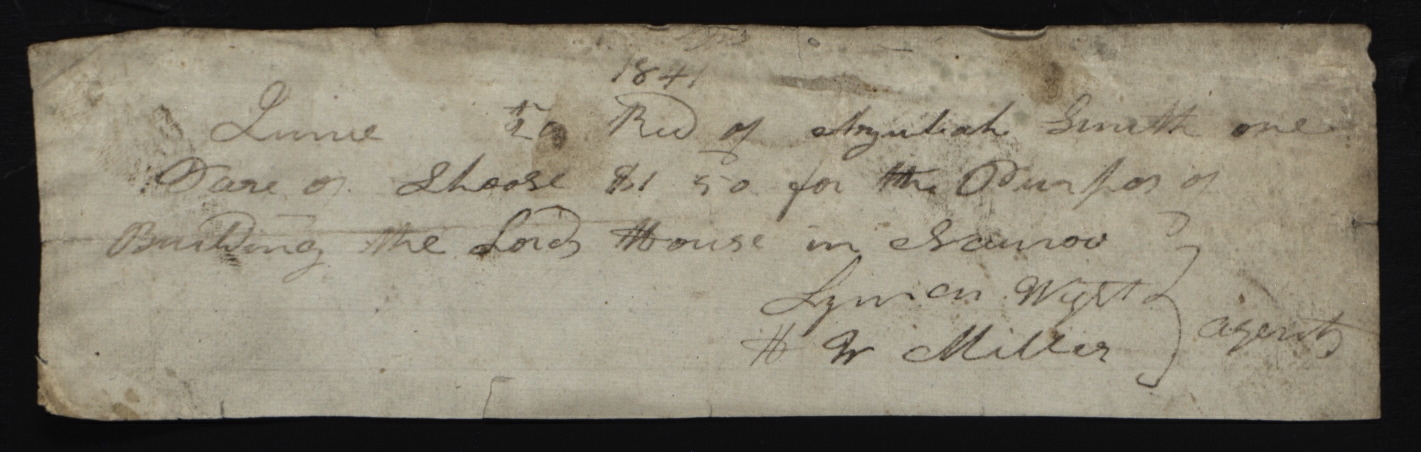 1841
June 20 Recd of Azubah Smith one
Pare of Shoose $1 50 for the Purpos of
Building the Lords House in Nauvoo
Lyman Wight
H W Miller } agents